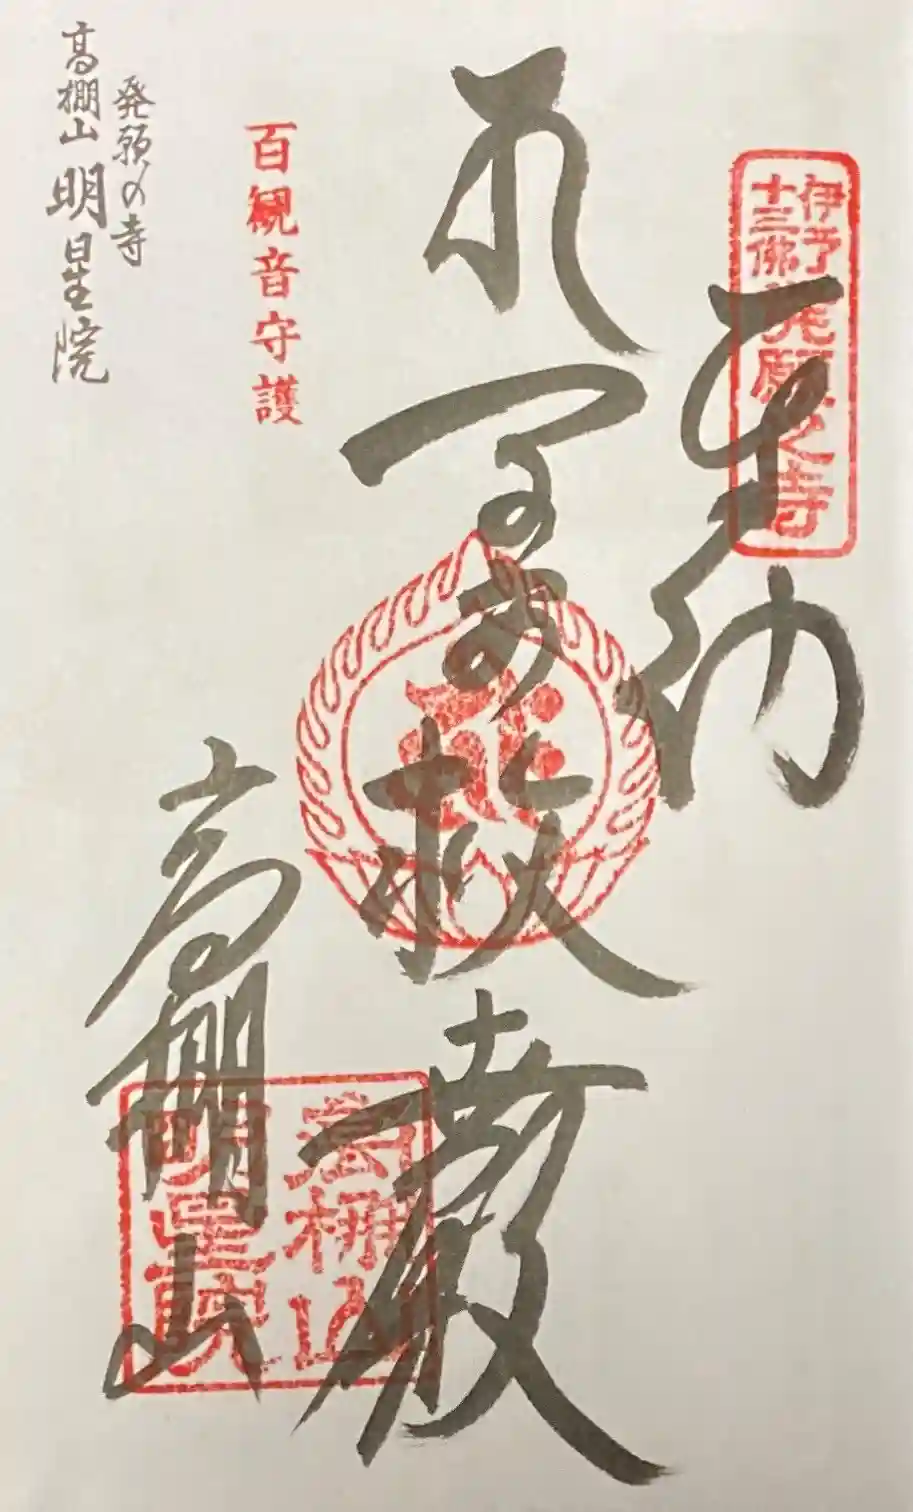 伊予
十三佛
発願之寺
奉納
百観音守護
高棚山
高棚山
明星院
発願の寺
高棚山 明星院